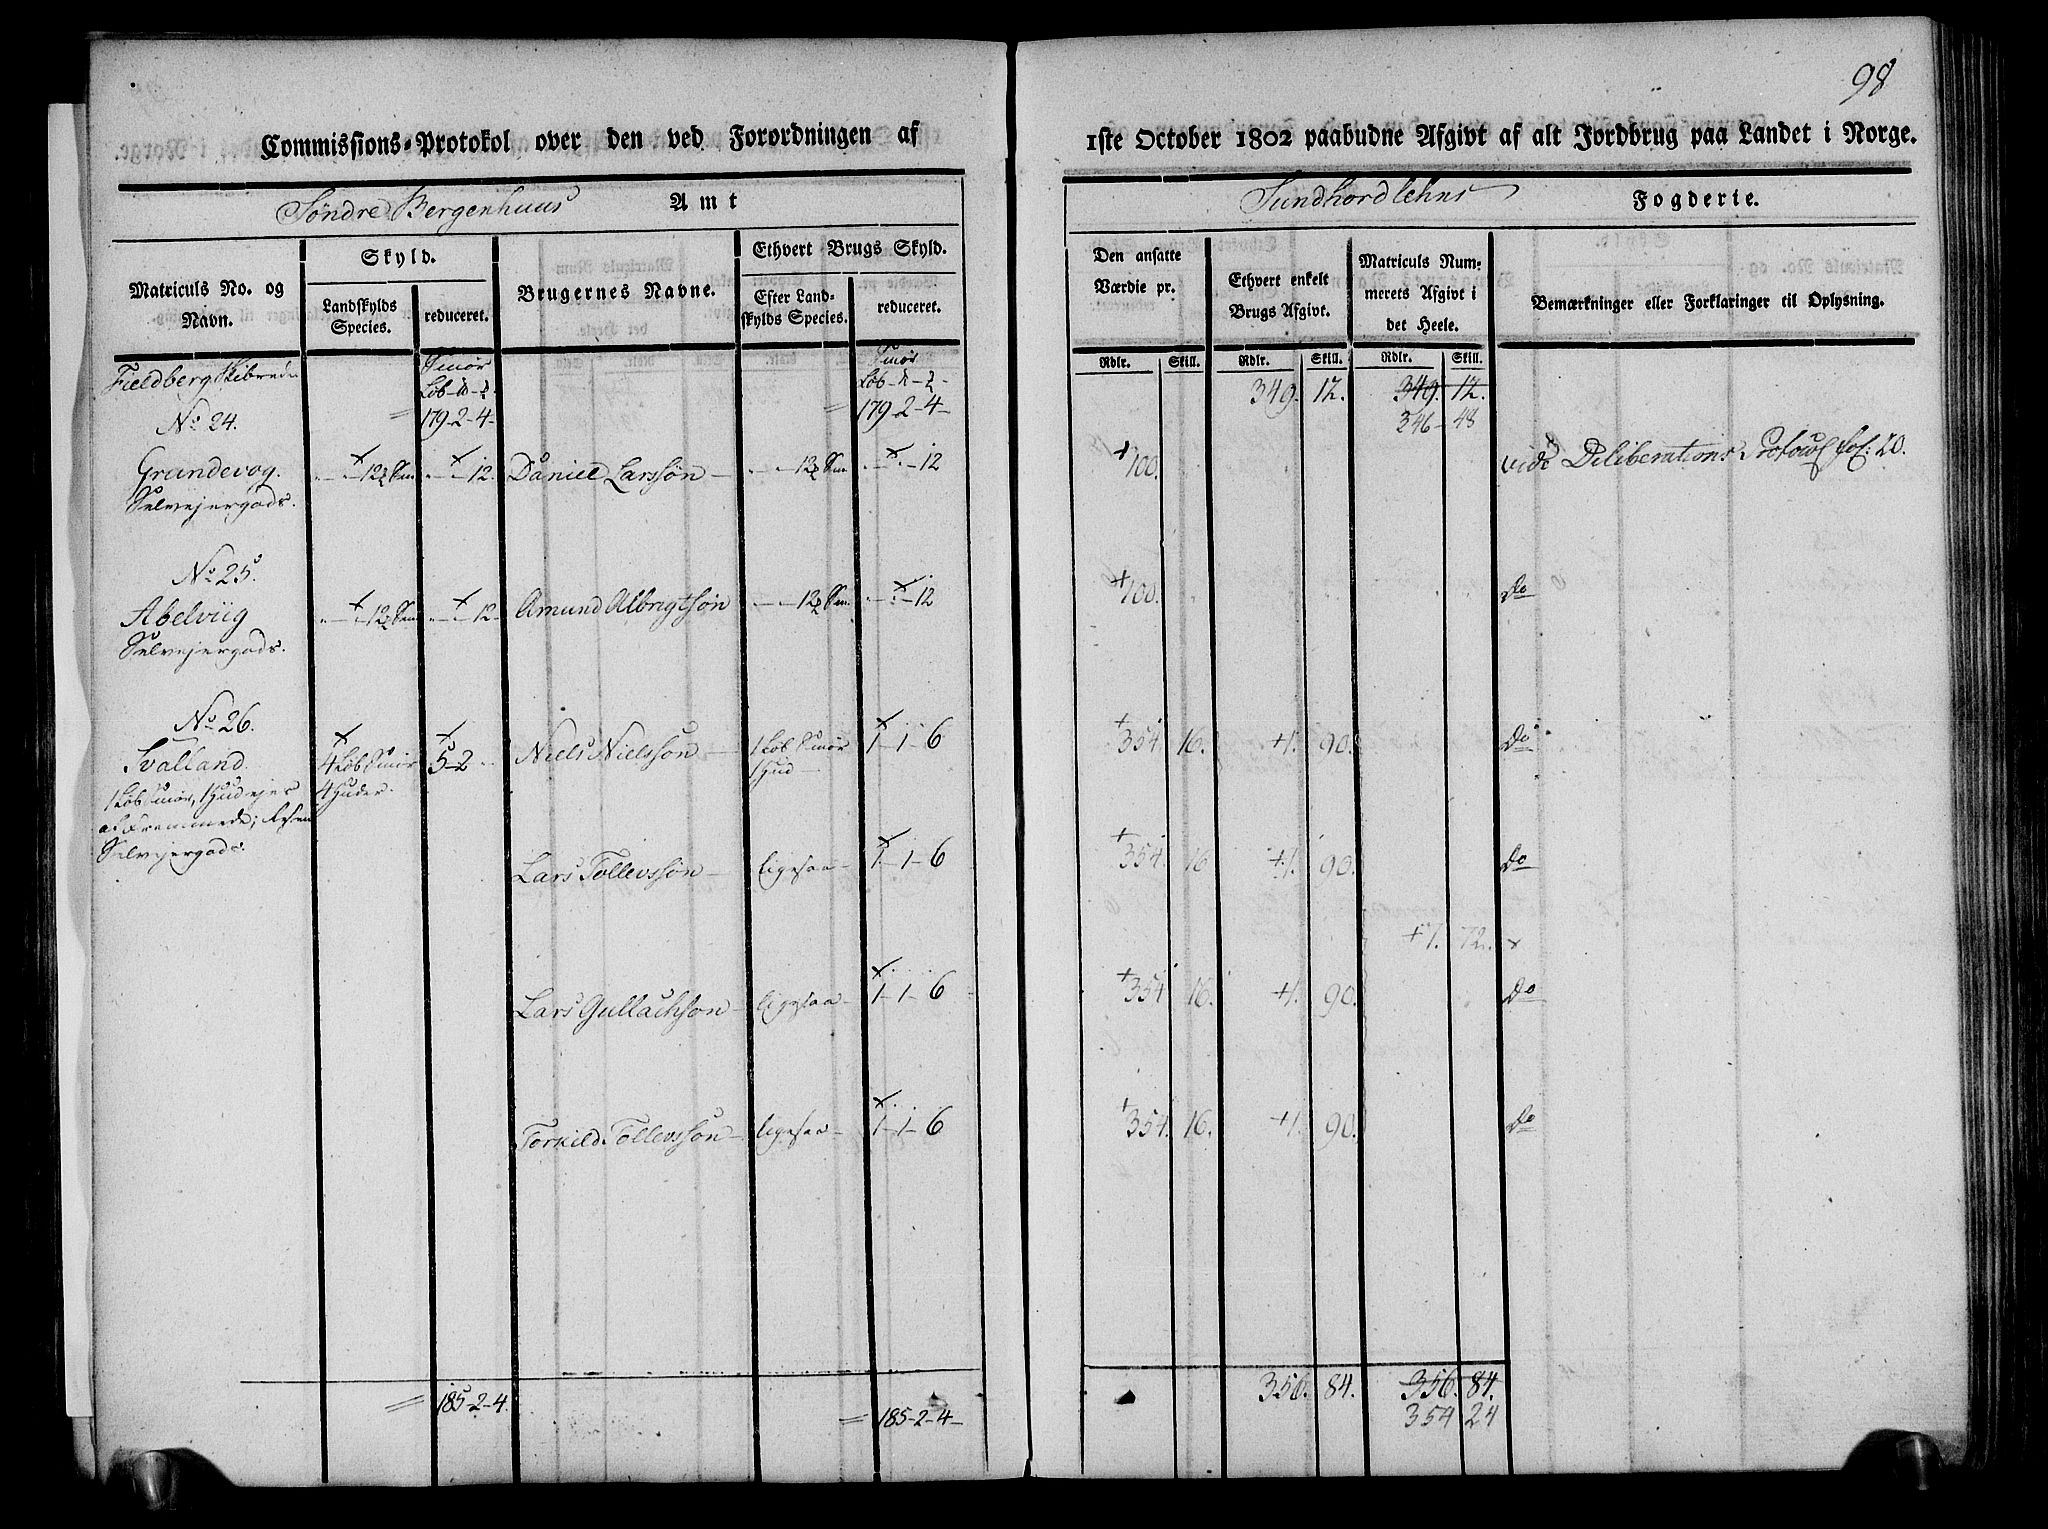 98
Commissions-Protokol over den ved Forordningen af 1ste October 1802 paabudne Afgivt af alt Jordbrug paa Landet i Norge.
Søndre Bergenhuus Amt
Sundhordlehns Fogderie.
Matriculs No. og Navn.
Skyld.
Landskylds Species.
reduceret.
Brugernes Navne.
Ethvert Brugs Skyld.
Efter Landskylds Species.
reduceret.
Den ansatte Værdie pr.
Rdlr. Skill.
Ethvert enkelt Brugs Afgivt.
Rdlr. Skill.
Matriculs Nummerets Afgivt i det Heele.
Rdlr. Skill.
Bemærkninger eller Forklaringer til Oplysning.
Fieldberg Skibrede
Smør Løb
Smør Løb
= 179-2-4- = 179-2-4- 349. 12. 349. 12.
346- 48
No 24.
Grundevog. 12 12 Daniel Larssøn - 12 +100. vide Deliberations Protocol fol: 20.
Selvejergods.
No 25.
Abelviig 12 12 Amund Albrigtsøn 12 +100. Do
Selvejergods.
No 26.
Svalland. 4 Løb Smør 5-2 Niels Nielssøn - 1 Løb Smør 1-1-6 +354. 16. +1. 90. Do
1 Løb Smør, 1 Hud ejes 4 Huder. 1 Hud -
af Fremmede; Resten
Selvejergods.
Lars Tollevssøn - ligesaa - 1-1-6 +354. 16 +1. 90. Do
+7. 72. x
Lars Gullachsøn - ligesaa - 1-1-6 +354 16. +1. 90. Do
Torkild Tollevssøn - ligesaa - 1-1-6 +354. 16. +1. 90. Do
= 185-2-4. = 185-2-4- 356. 84. 356. 84.
354 24